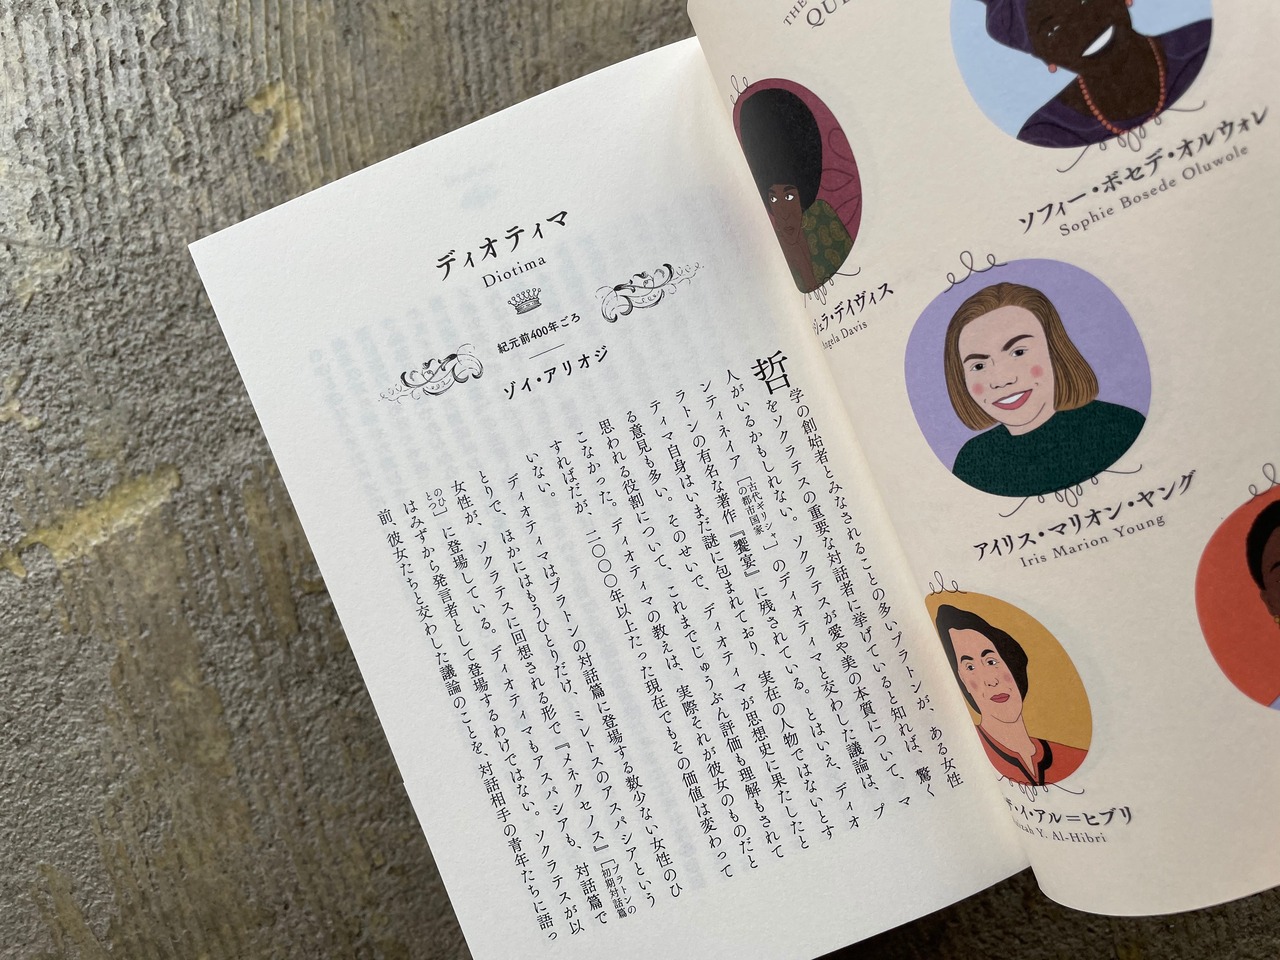 ディオティマ
Diotima
紀元前400年ごろ
ゾイ・アリオジ
哲学の創始者とみなされることの多いプラトンが、ある女性
をソクラテスの重要な対話者に挙げていると知れば、驚く
人がいるかもしれない。ソクラテスが愛や美の本質について、マ
ンティネイア［古代ギリシャの都市国家］のディオティマと交わした議論は、プ
ラトンの有名な著作『饗宴』に残されている。とはいえ、ディオ
ティマ自身はいまだ謎に包まれており、実在の人物ではないとす
る意見も多い。そのせいで、ディオティマが思想史に果たしたと
思われる役割について、これまでじゅうぶん評価も理解もされて
こなかった。ディオティマの教えは、実際それが彼女のものだと
すればだが、二〇〇〇年以上たった現在でもその価値は変わって
いない。
ディオティマはプラトンの対話篇に登場する数少ない女性のひ
とりで、ほかにはもうひとりだけ、ミレトスのアスパシアという
女性が、ソクラテスに回想される形で『メネクセノス』［プラトンの初期対話篇
のひとつ］に登場している。ディオティマもアスパシアも、対話篇で
はみずから発言者として登場するわけではない。ソクラテスが以
前、彼女たちと交わした議論のことを、対話相手の青年たちに語っ
THE
QU
ソフィー・ボセデ・オルウォレ
Sophie Bosede Oluwole
ジェラ・デイヴィス
Angela Davis
アイリス・マリオン・ヤング
Iris Marion Young
ザ・イ・アル＝ヒブリ
zah Y. Al-Hibri